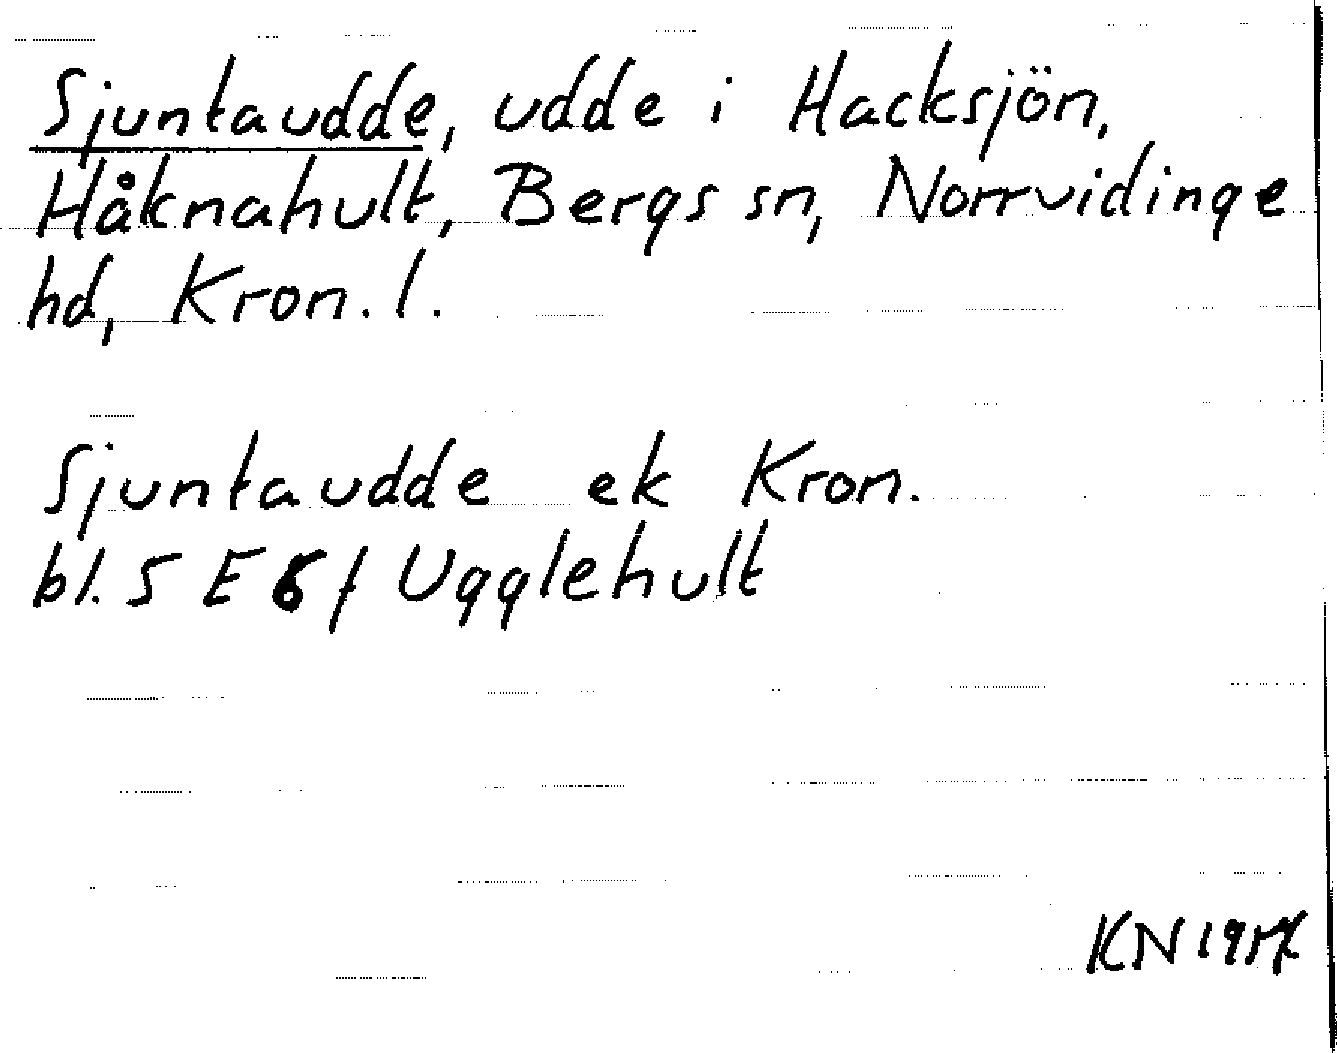 Sjuntaudde, udde i Hacksjön,
Håknahult, Bergs sn, Norrvidinge
hd, Kron. l.
Sjuntaudde ek Kron.
bl. 5 E 6 f Ugglehult
KN